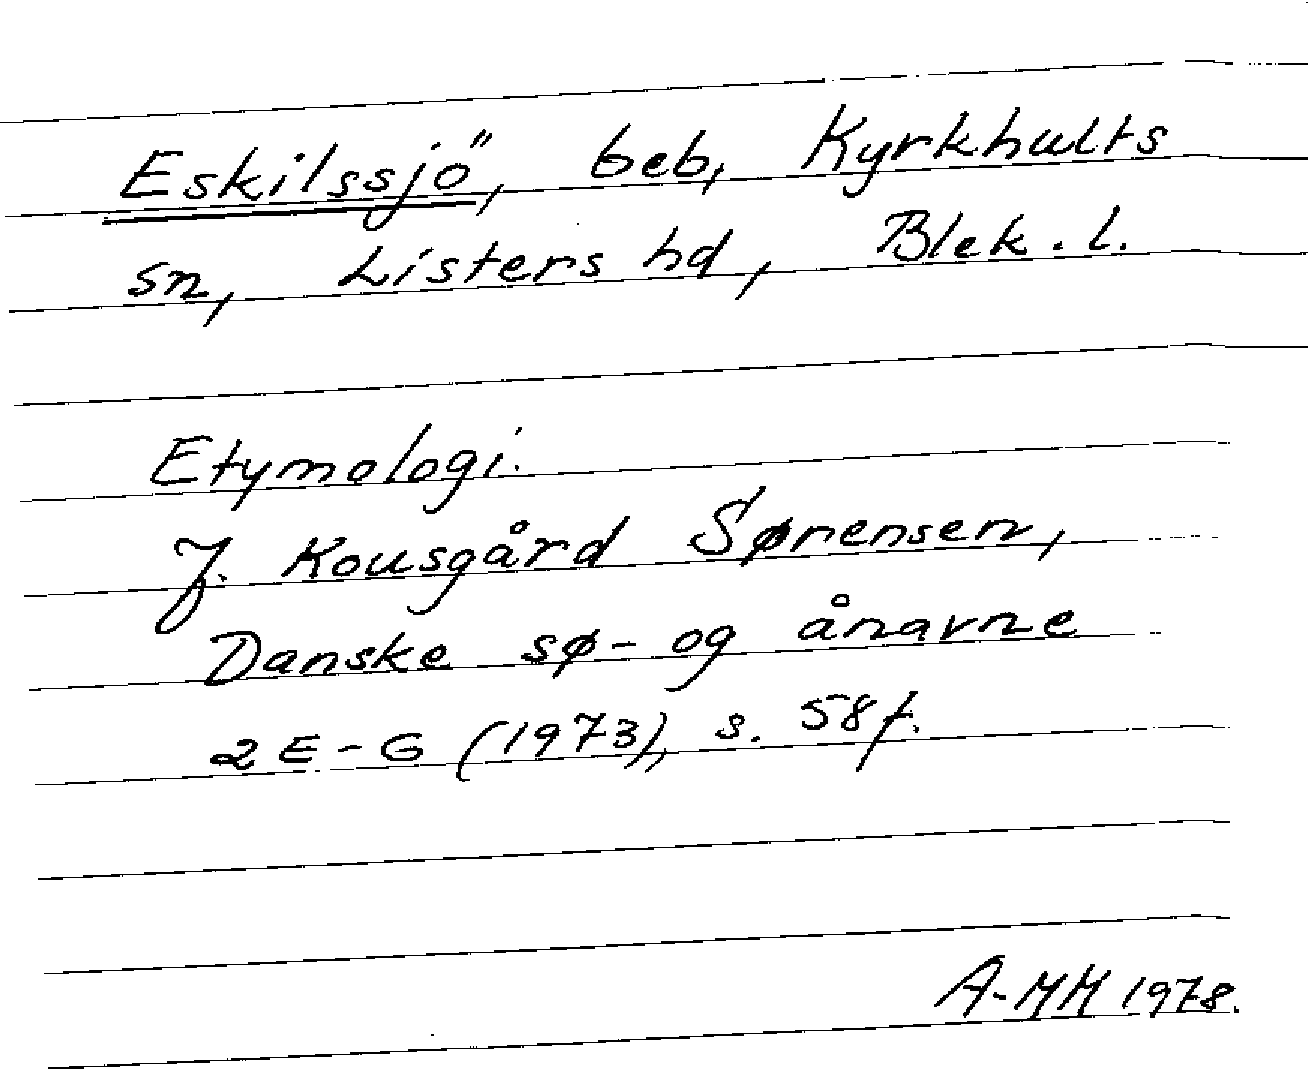 Eskilssjö, beb, Kyrkhults
sn, Listers hd, Blek. l.
Etymologi.
J. Kousgård Sørensen,
Danske sø- og ånavne
2 E-G (1973), s. 58 f.
A-MH 1978.